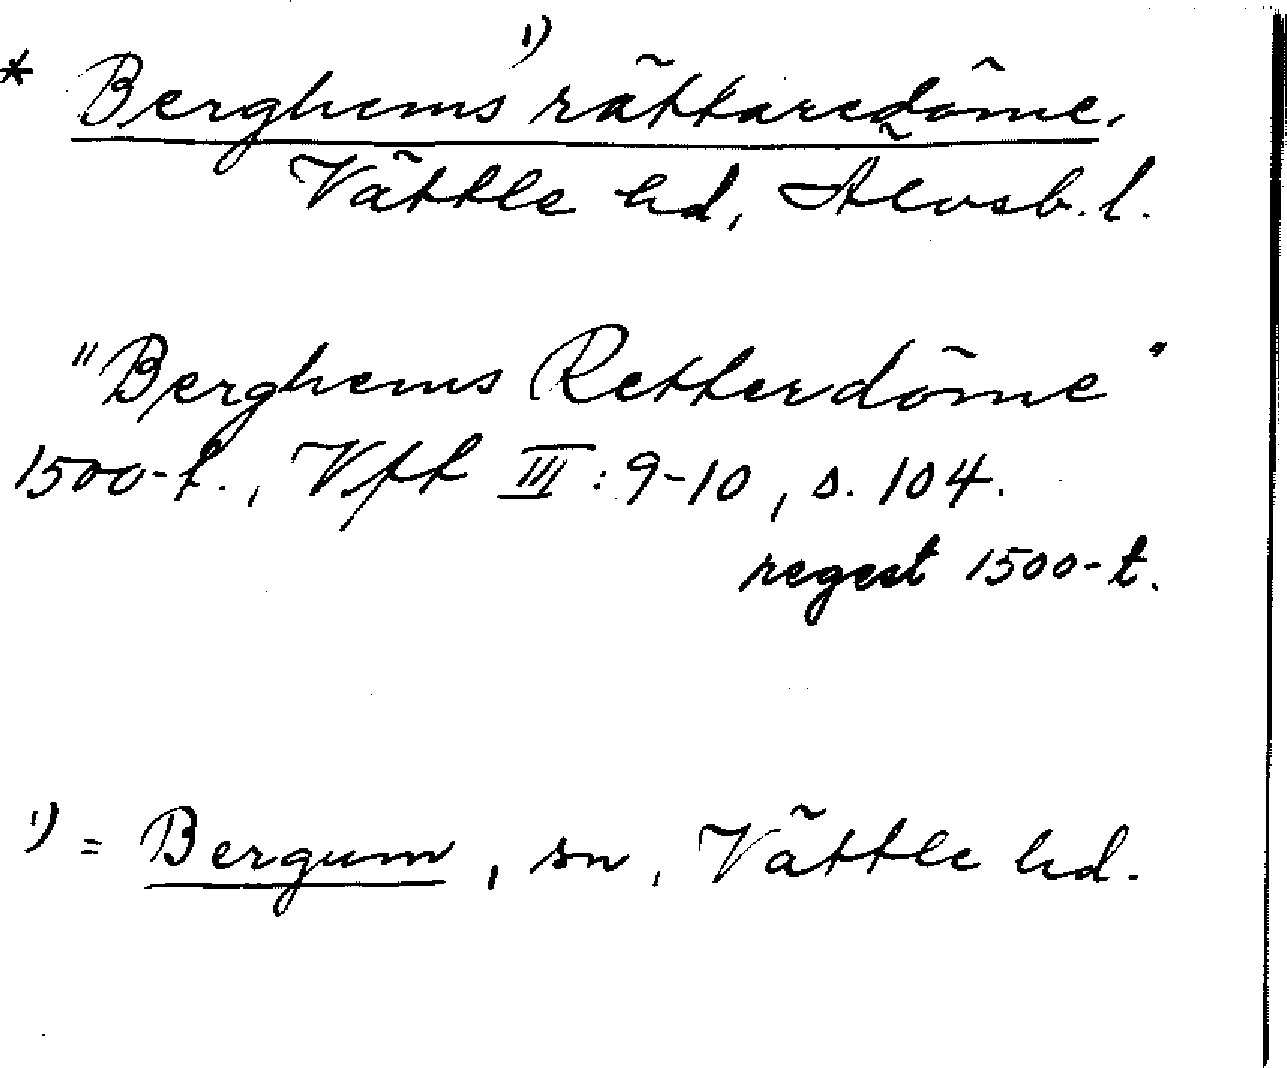 * Berghems¹⁾ rättaredöme.
Vättle hd, Älvsb. l.
"Berghems Retterdöme"
1500-t., Vft III: 9-10, s. 104.
regest 1500-t.
¹⁾ = Bergum, sn, Vättle hd.